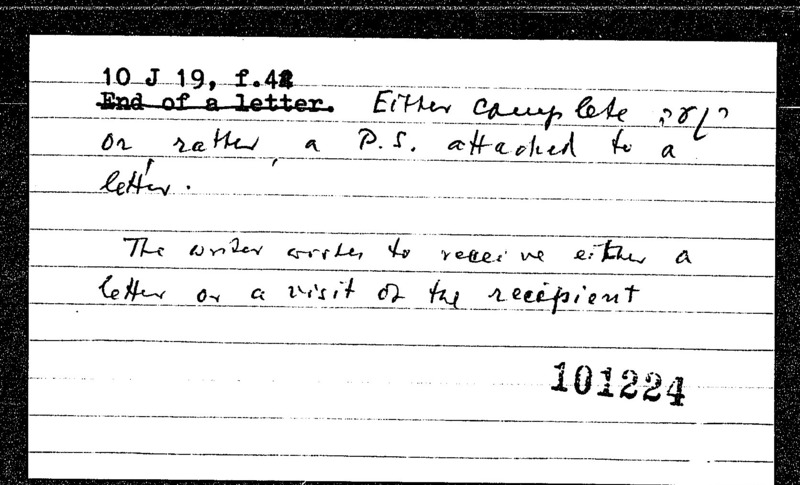 10 J 19, f.4
End of a letter. Either complete
or, rather, a P.S. attached to a
letter.
The writer wishes to receive either a
letter or a visit of the recipient
101224